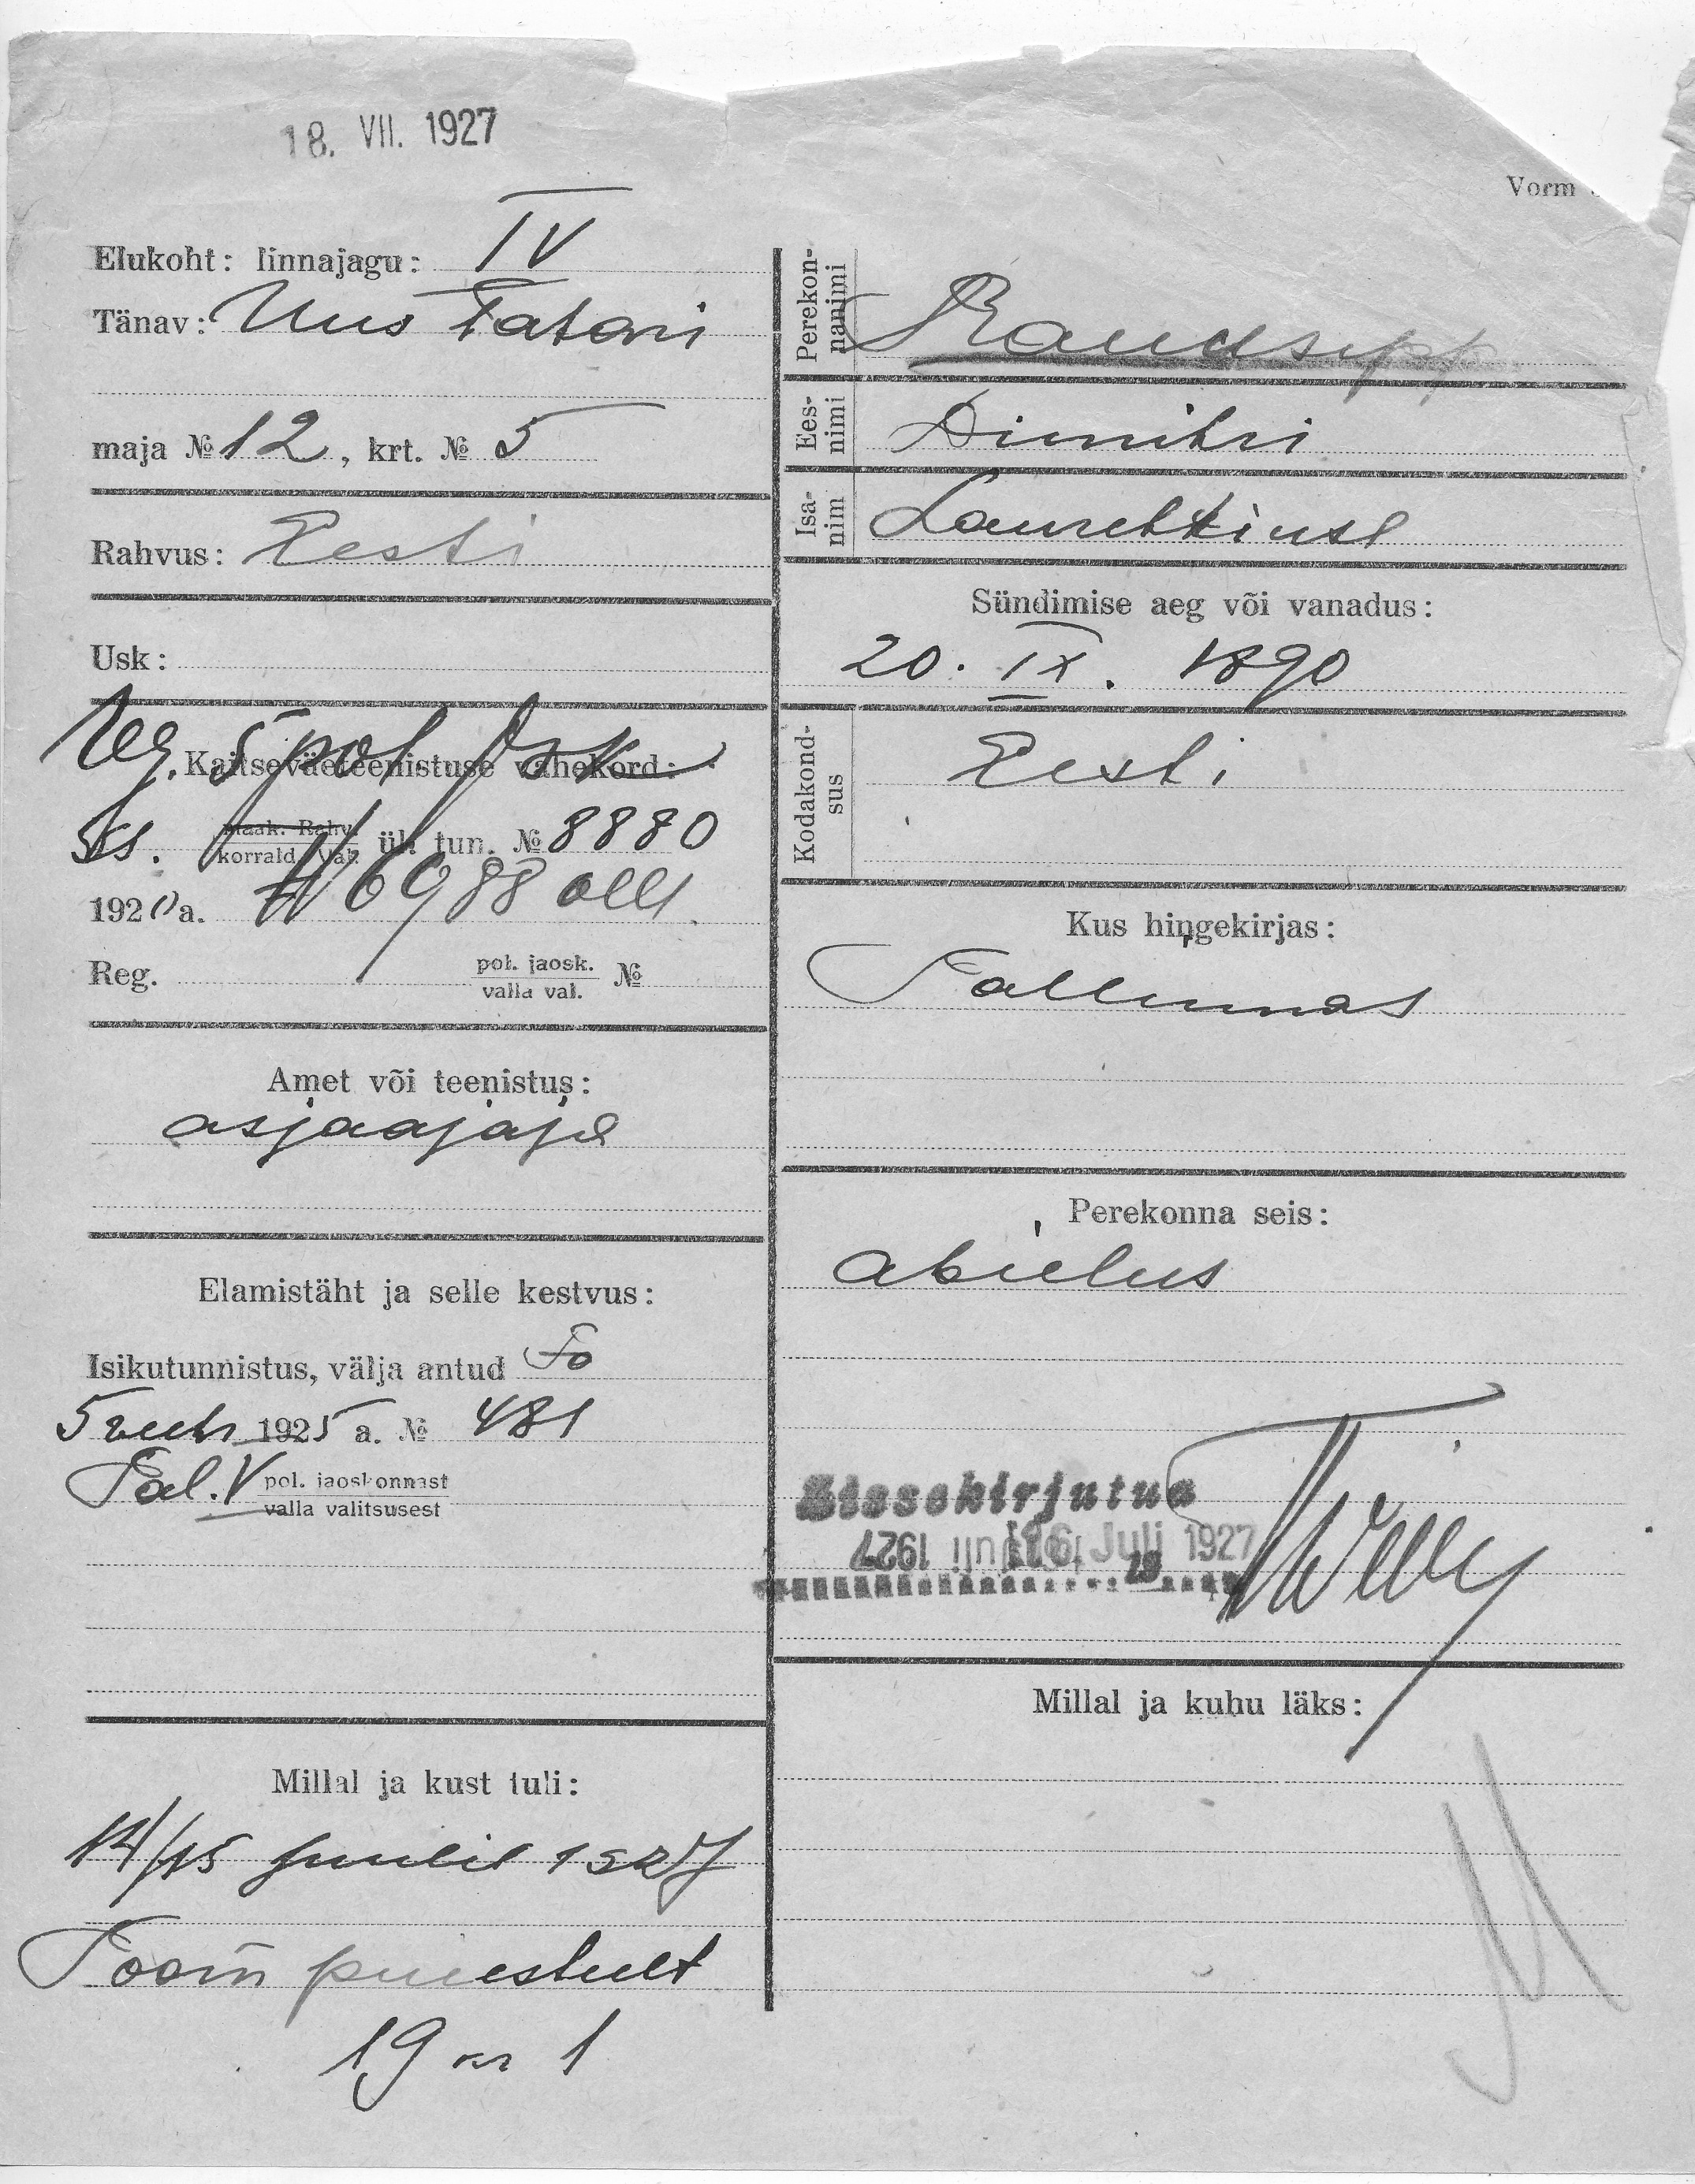 18. VII. 1927
Vorm
Elukoht: linnajagu: IV
Tänav: Uus Tatari
maja № 12, krt. № 5
Rahvus: Eesti
Usk:
Kaitseväeteenistuse vahekord:
korrald. val. ül. tun. № 8880
1920 a. 6988 all
Reg. pol. jaosk. №
valla val.
Amet või teenistus:
asjaajaja
Elamistäht ja selle kestvus:
Isikutunnistus, välja antud To
5 veebr 1925 a. № 481
Tal. V pol. jaoskonnast
valla valitsusest
Millal ja kust tuli:
14/15 juulil 1927
Toom puiesteelt
19 kr 1
Perekon-
nanimi
Raudsepp
Ees-
nimi
Dimitri
Isa-
nim
Laurentiuse
Sündimise aeg või vanadus:
20. IX. 1890
Kodakond-
sus
Eesti
Kus hingekirjas:
Tallinnas
Perekonna seis:
abielus
Sissekirjutud
16. Juli 1927
19
Millal ja kuhu läks: